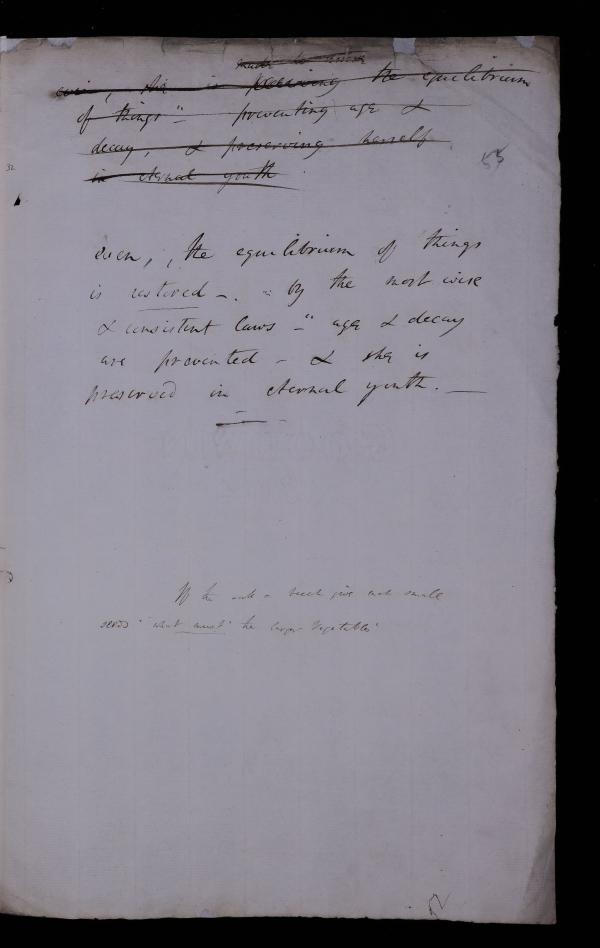 made to 
even, she is preserving the equilibrium
of things" - preventing age &
decay, & preserving herself
in eternal youth
55
32
even, , the equilibrium of things
is restored - . " by the most wise
& consistent laws -" age & decay
are prevented - & she is
preserved in eternal youth. —
If the give such small
seeds " what must " the larger vegetables"